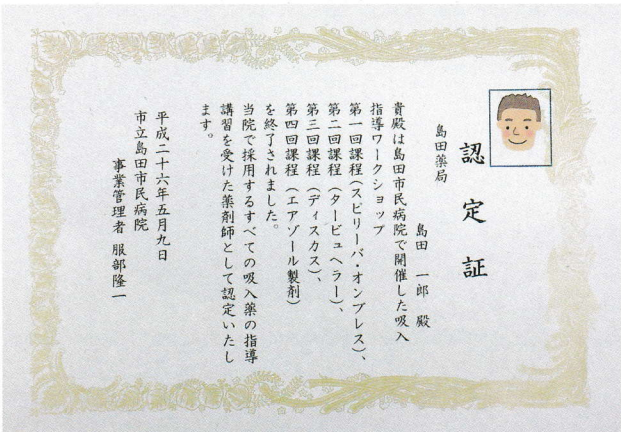 認定証
島田薬局
島田 一郎 殿
貴殿は島田市民病院で開催した吸入
指導ワークショップ
第一回課程(スピリーバ・オンブレス)、
第二回課程(タービュヘラー)、
第三回課程(ディスカス)、
第四回課程(エアゾール製剤)
を終了されました。
当院で採用するすべての吸入薬の指導
講習を受けた薬剤師として認定いたし
ます。
平成二十六年五月九日
市立島田市民病院
事業管理者 服部隆一